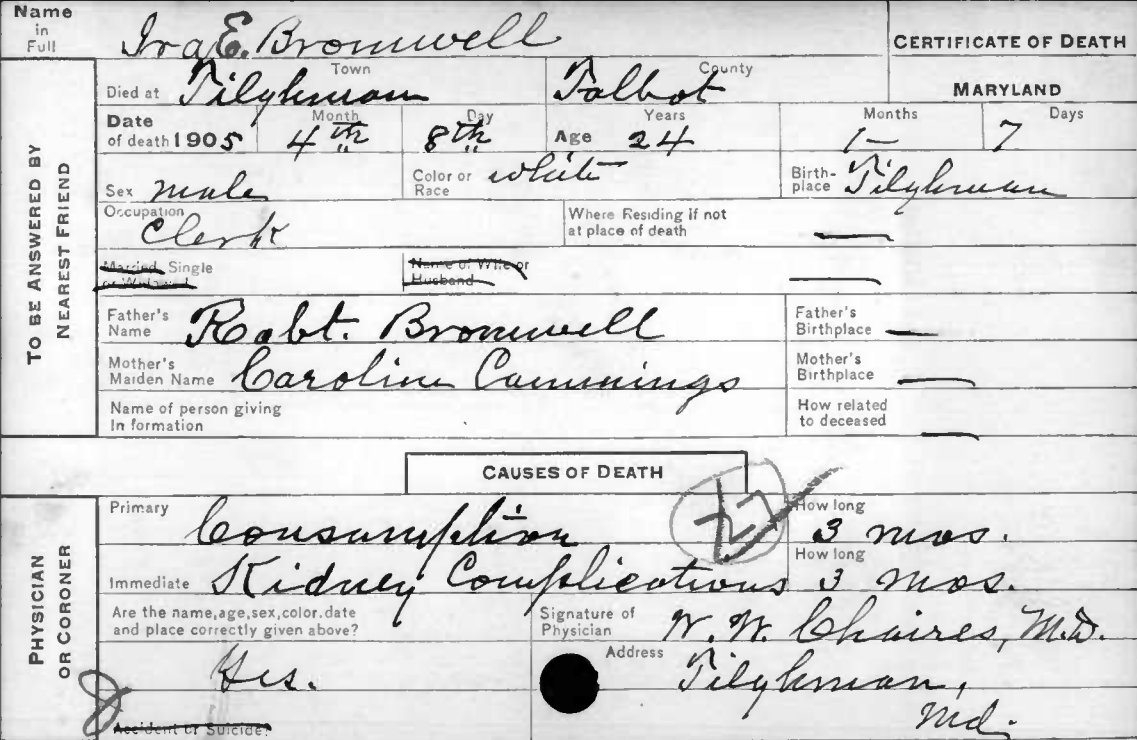 Name in Full Ira E. Bromwell
CERTIFICATE OF DEATH
TO BE ANSWERED BY NEAREST FRIEND
Died at Tilghman Town Talbot County MARYLAND
Date of death 1905 Month 4th Day 8th Age Years 24 Months 1 Days 7
Sex male Color or Race white Birth-place Tilghman
Occupation Clerk Where Residing if not at place of death —
Married Single or Widowed Name of Wife or Husband —
Father's Name Robt. Bromwell Father's Birthplace —
Mother's Maiden Name Caroline Cummings Mother's Birthplace —
Name of person giving In formation How related to deceased —
CAUSES OF DEATH
PHYSICIAN OR CORONER
Primary Consumption 27 How long 3 mos.
Immediate Kidney Complications How long 3 mos.
Are the name, age, sex, color. date and place correctly given above? Signature of Physician W. W. Chaires, M.D.
Yes. Address Tilghman,
Accident or Suicide? Md.